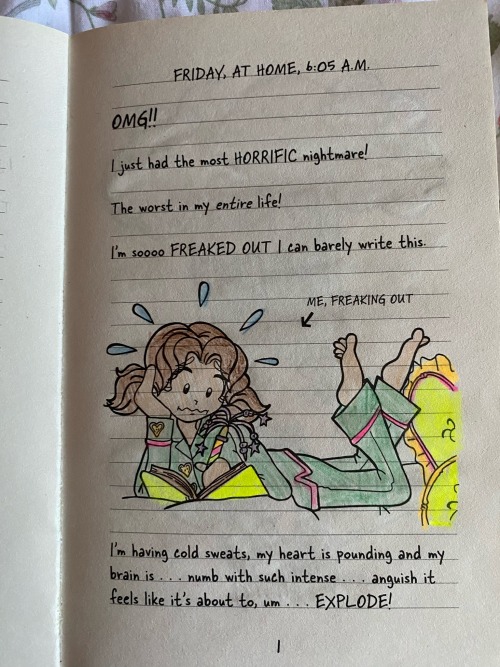 FRIDAY, AT HOME, 6:05 A.M.
OMG!!
I just had the most HORRIFIC nightmare!
The worst in my entire life!
I'm soooo FREAKED OUT I can barely write this.
ME, FREAKING OUT
I'm having cold sweats, my heart is pounding and my
brain is . . . numb with such intense . . . anguish it
feels like it's about to, um . . . EXPLODE!
1